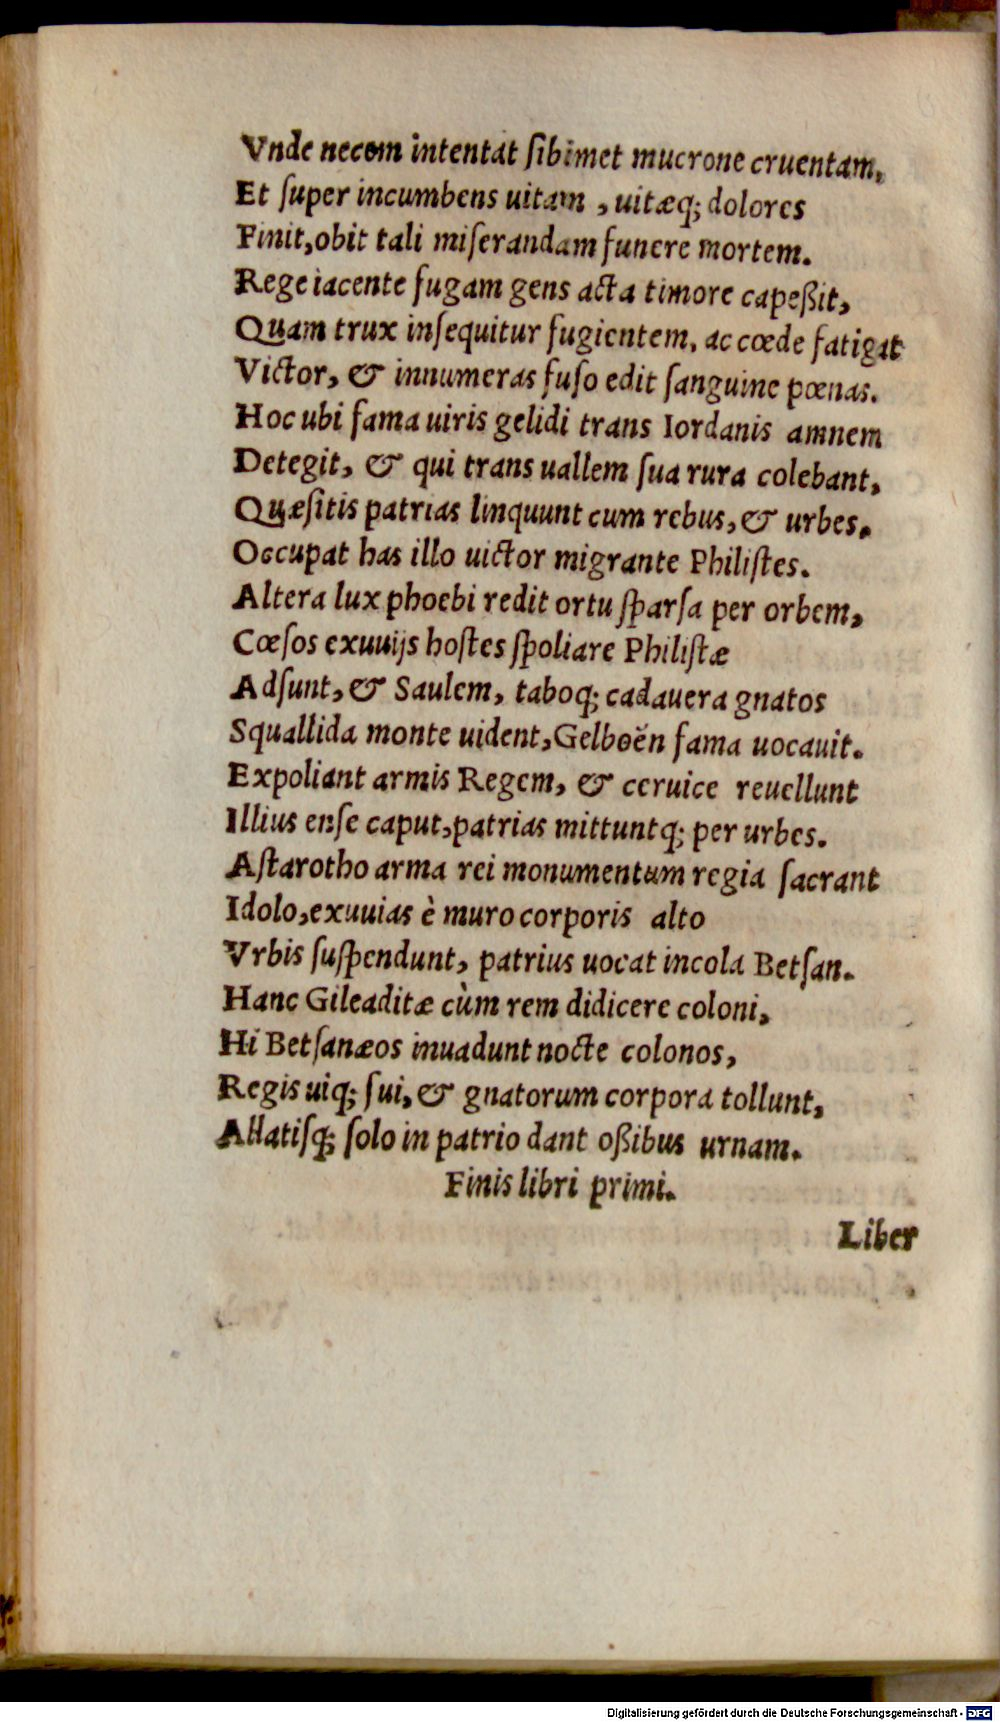 Vnde necem intentat ſibimet mucrone cruentam,
Et ſuper incumbens uitam , uitæq; dolores
Finit,obit tali miſerandam funere mortem.
Rege iacente fugam gens acta timore capeßit,
Quam trux inſequitur fugientem, ac cœde fatigat
Victor, & innumeras fuſo edit ſanguine pœnas.
Hoc ubi fama uiris gelidi trans Iordanis amnem
Detegit, & qui trans uallem ſua rura colebant,
Quæſitis patrias linquunt cum rebus, & urbes.
Occupat has illo uictor migrante Philiſtes.
Altera lux phoebi redit ortu ſparſa per orbem,
Cœſos exuuijs hoſtes ſpoliare Philiſtæ
Adſunt, & Saulem, taboq; cadauera gnatos
Squallida monte uident,Gelboën fama uocauit.
Expoliant armis Regem, & ceruice reuellunt
Illius enſe caput,patrias mittuntq; per urbes.
Aſtarotho arma rei monumentum regia ſacrant
Idolo,exuuias è muro corporis alto
Vrbis ſuſpendunt, patrius uocat incola Betſan.
Hanc Gileaditæ cùm rem didicere coloni,
Hi Betſanæos inuadunt nocte colonos,
Regis uiq; ſui, & gnatorum corpora tollunt,
Allatiſq; ſolo in patrio dant oßibus urnam.
Finis libri primi.
Liber
Digitalisierung gefördert durch die Deutsche Forschungsgemeinschaft - DFG